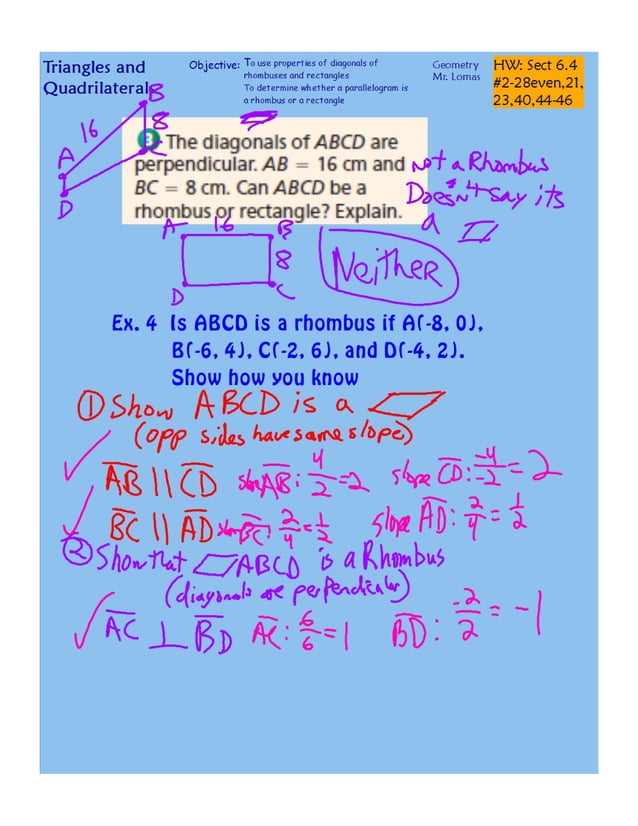 Triangles and
Quadrilaterals
Objective: To use properties of diagonals of
rhombuses and rectangles
To determine whether a parallelogram is
a rhombus or a rectangle
Geometry
Mr. Lomas
HW: Sect 6.4
#2-28even,21,
23,40,44-46
B
16
8
A
C
D
3 The diagonals of ABCD are
perpendicular. AB = 16 cm and
BC = 8 cm. Can ABCD be a
rhombus or rectangle? Explain.
Not a Rhombus
Doesn't say its
a ▱
A 16 B
8
D C
Neither
Ex. 4 Is ABCD is a rhombus if A(-8, 0),
B(-6, 4), C(-2, 6), and D(-4, 2).
Show how you know
① Show ABCD is a ▱
(opp sides have same slope)
✓ AB || CD slope AB: 4/2 = 2 slope CD: -4/-2 = 2
✓ BC || AD slope BC: 2/4 = 1/2 slope AD: 2/4 = 1/2
② Show that ▱ABCD is a Rhombus
(diagonals are perpendicular)
✓ AC ⊥ BD AC: 6/6 = 1 BD: -2/2 = -1